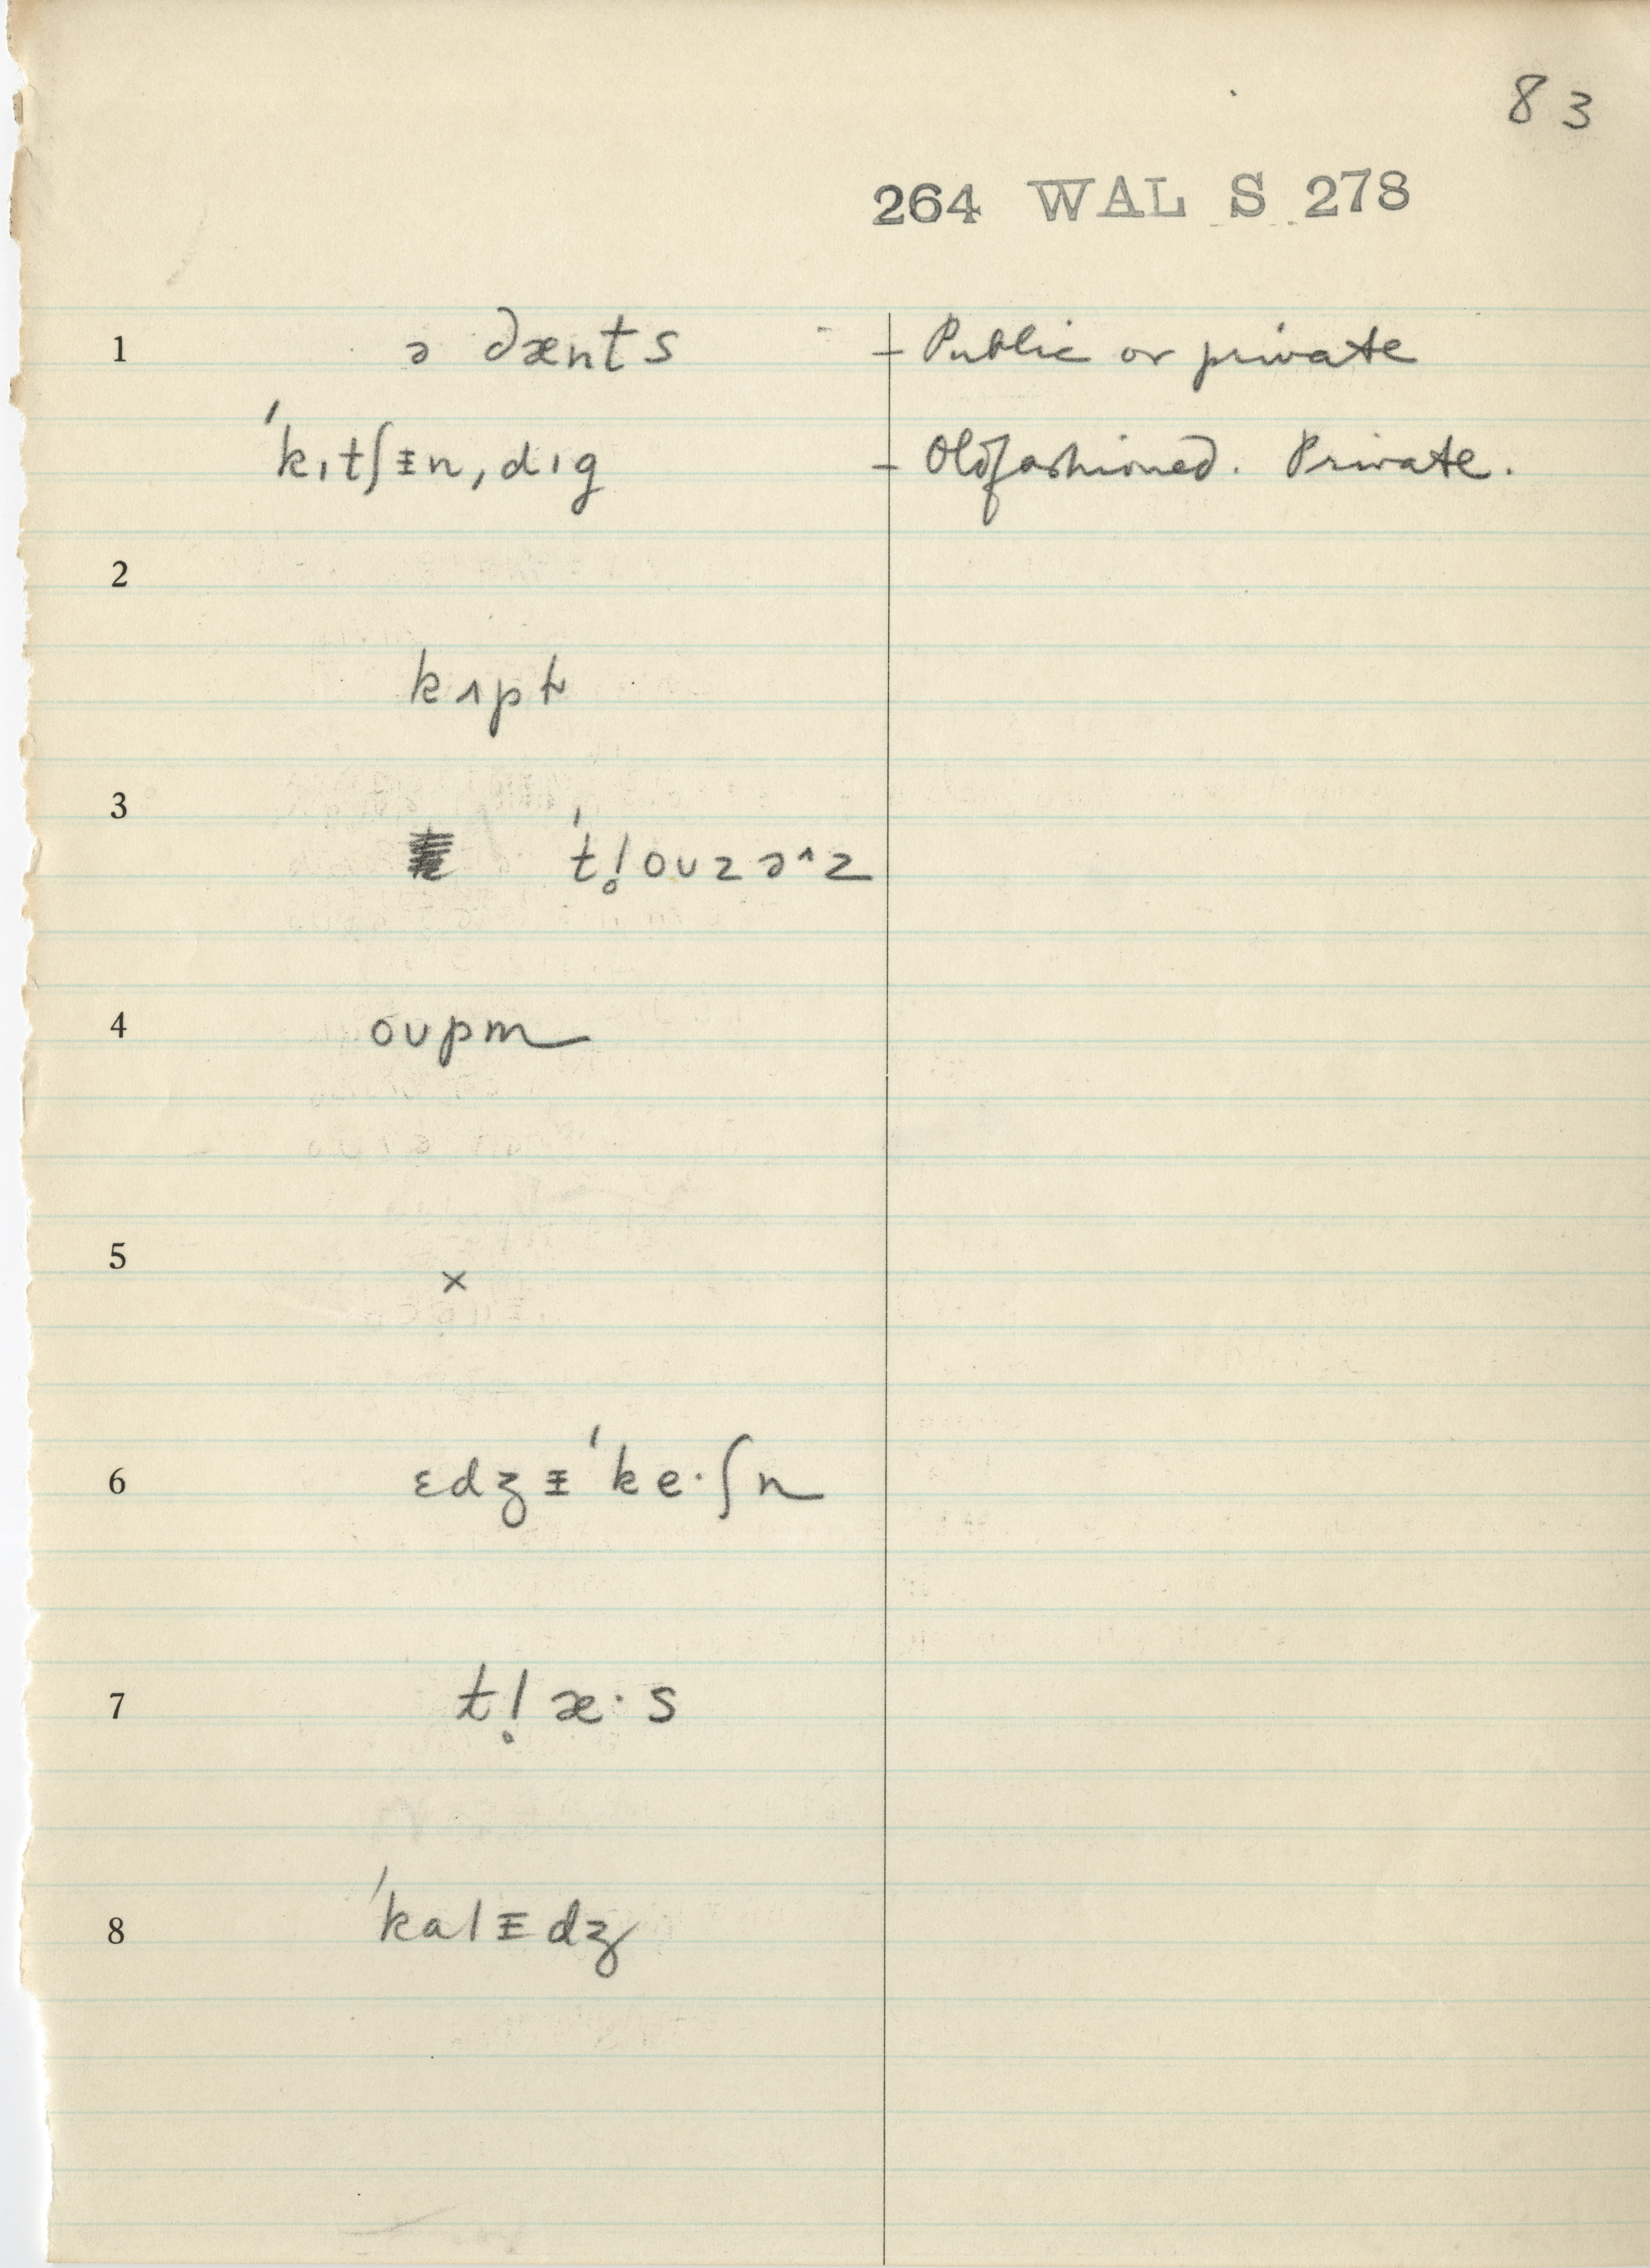 83
264 WAL S 278
1 ə dænts – Public or private
ˈkɪtʃᵻnˌdɪg – Oldfashioned. Private.
2
kʌpt
3
ˈt!̥oʊzəˆz
4 oʊpm
5
×
6 ɛdʒᵻˈke·ʃn
7 t!̥æ·s
8 ˈkalᵻdʒ